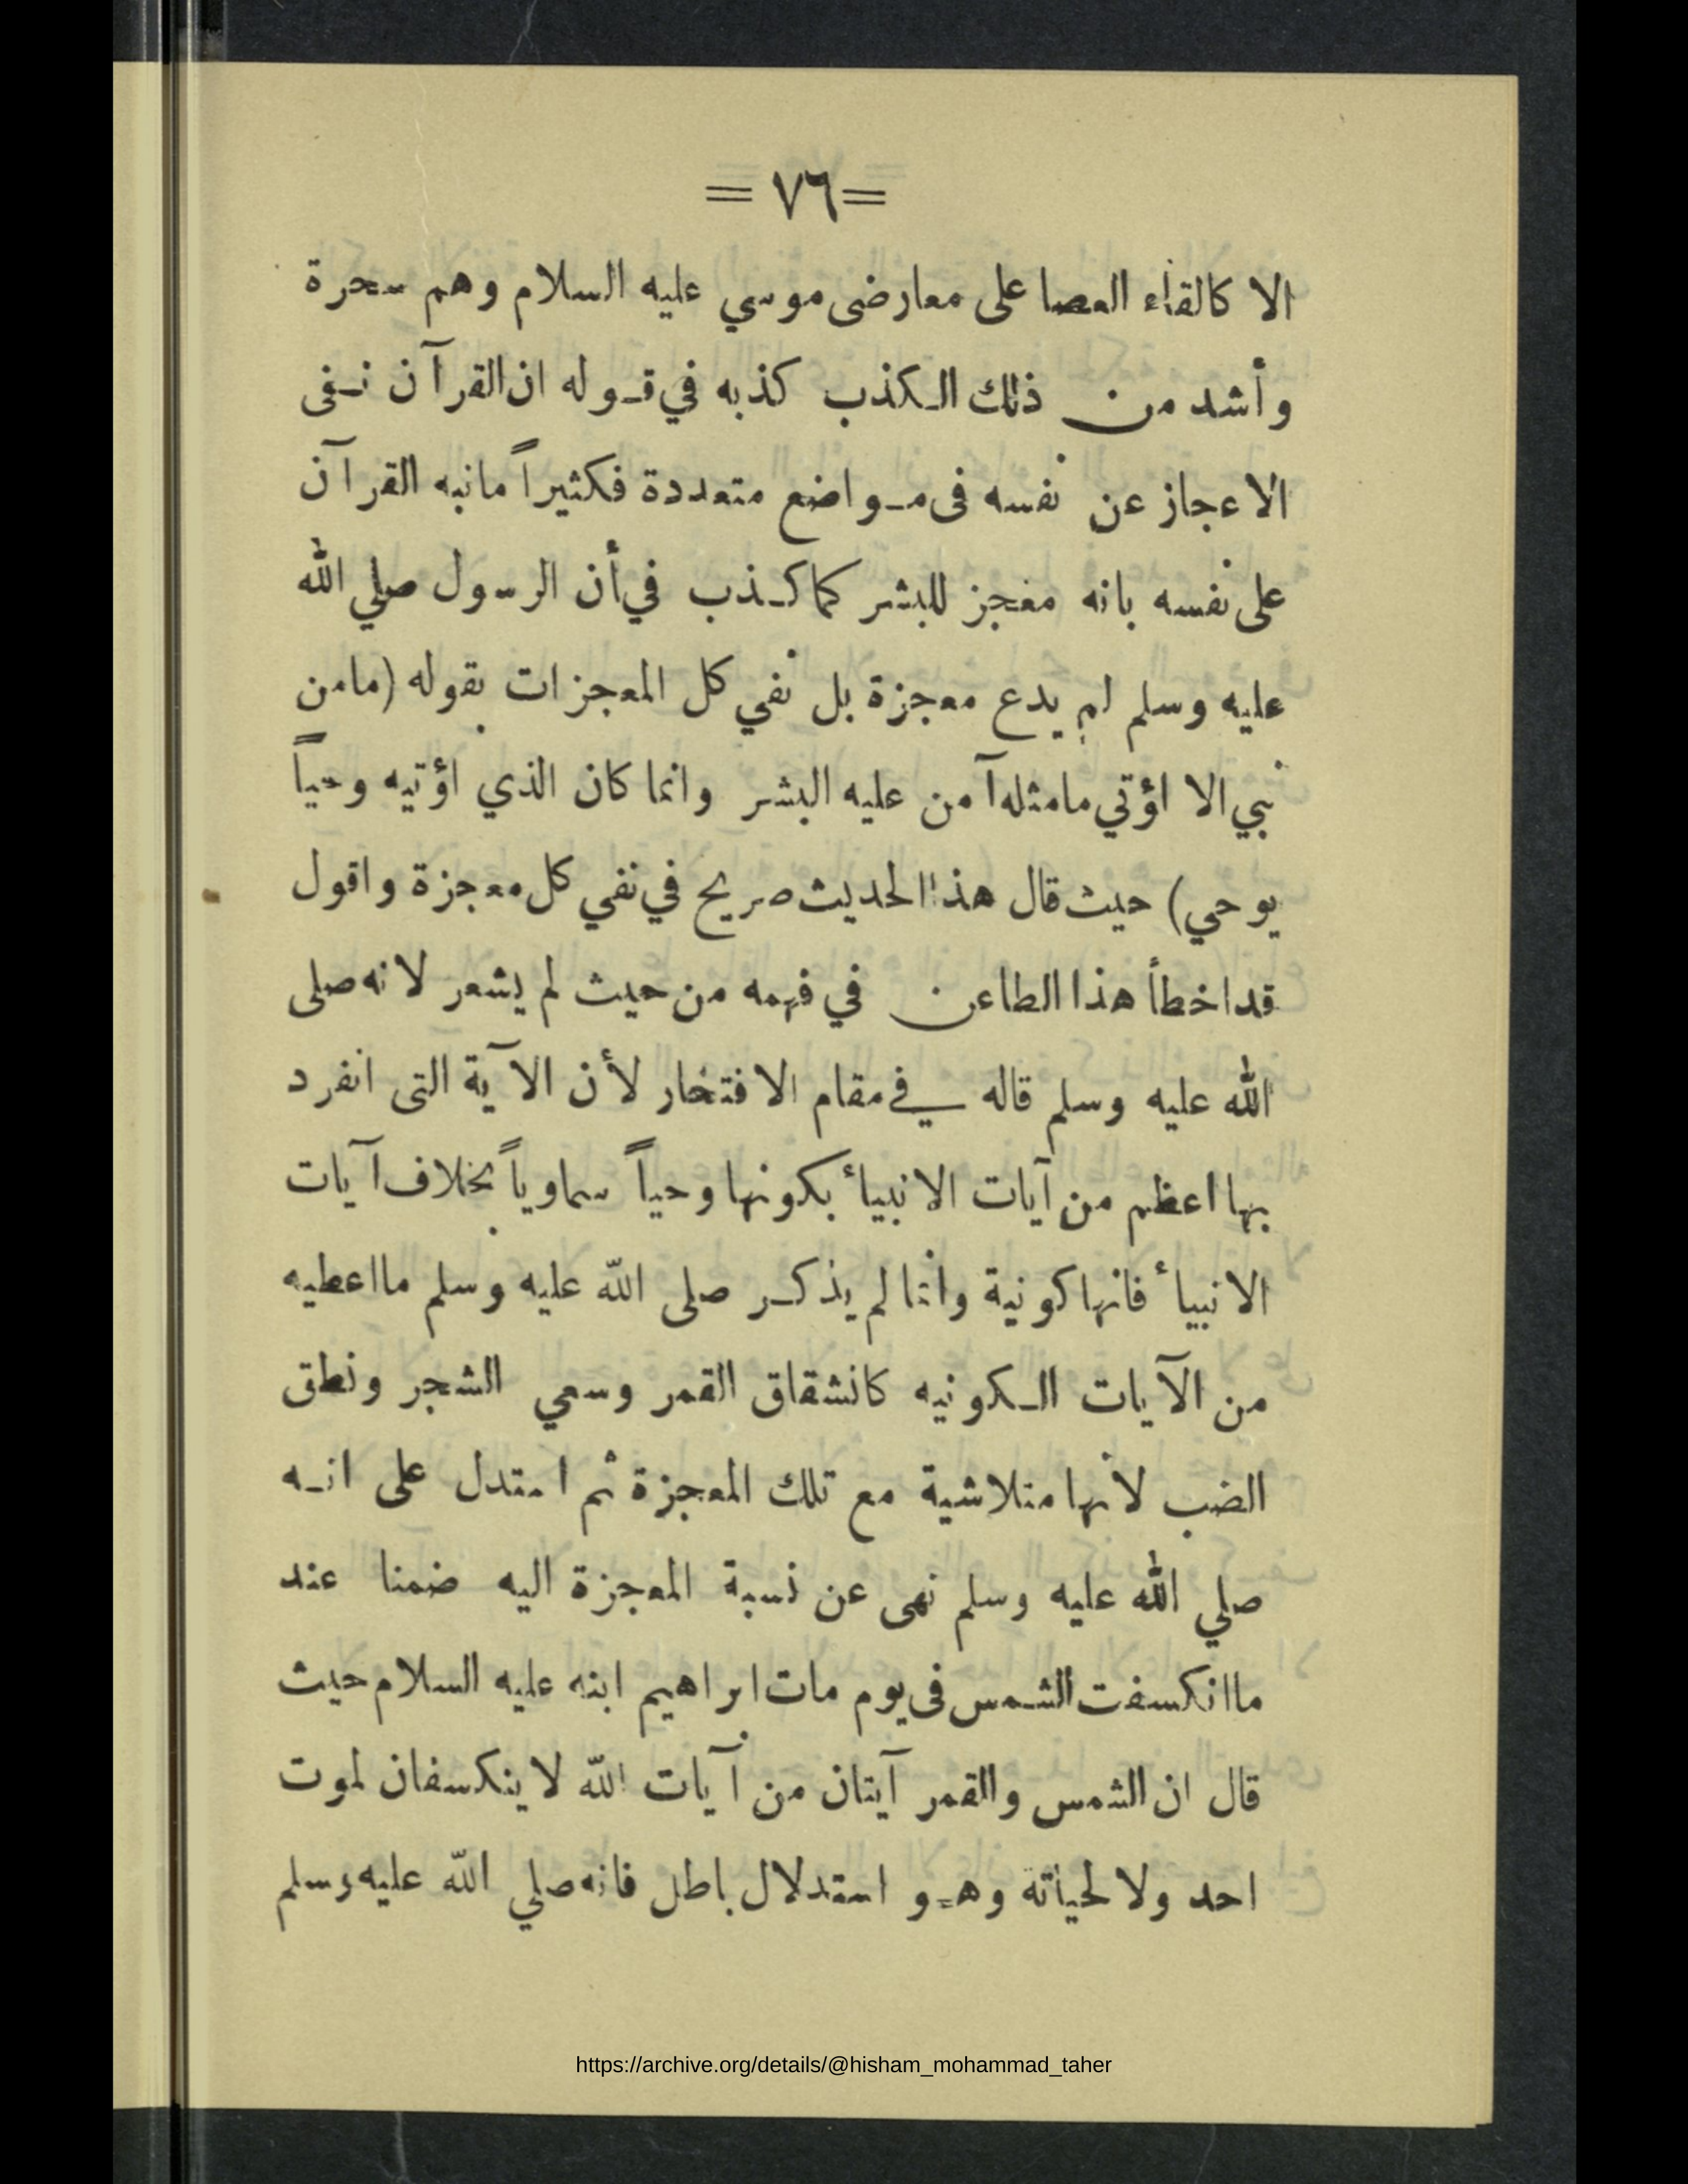 =٧٦=
الا كالقاء العصا على معارضى موسي عليه السلام وهم سحرة
وأشد من ذلك الكذب كذبه في قوله ان القرآن نفى
الاعجاز عن نفسه فى مواضع متعددة فكثيراً مانبه القرآن
على نفسه بانه معجز للبشر كما كذب في أن الرسول صلي الله
عليه وسلم لم يدع معجزة بل نفي كل المعجزات بقوله (مامن
نبي الا اؤتي مامثله آمن عليه البشر وانما كان الذي اؤتيه وحياً
يوحي) حيث قال هذا الحديث صريح في نفي كل معجزة واقول
قد اخطأ هذا الطاعن في فهمه من حيث لم يشعر لانه صلى
الله عليه وسلم قاله في مقام الافتخار لأن الآية التى انفرد
بها اعظم من آيات الانبيأ بكونها وحياً سماوياً بخلاف آيات
الانبيأ فانها كونية وانما لم يذكر صلى الله عليه وسلم مااعطيه
من الآيات الكونيه كانشقاق القمر وسعي الشجر ونطق
الضب لانها متلاشية مع تلك المعجزة ثم استدل على انه
صلي الله عليه وسلم نهى عن نسبة المعجزة اليه ضمنا عند
ماانكسفت الشمس فى يوم مات ابراهيم ابنه عليه السلام حيث
قال ان الشمس والقمر آيتان من آيات الله لا ينكسفان لموت
احد ولا لحياته وهو استدلال باطل فانه صلي الله عليه وسلم
https://archive.org/details/@hisham_mohammad_taher